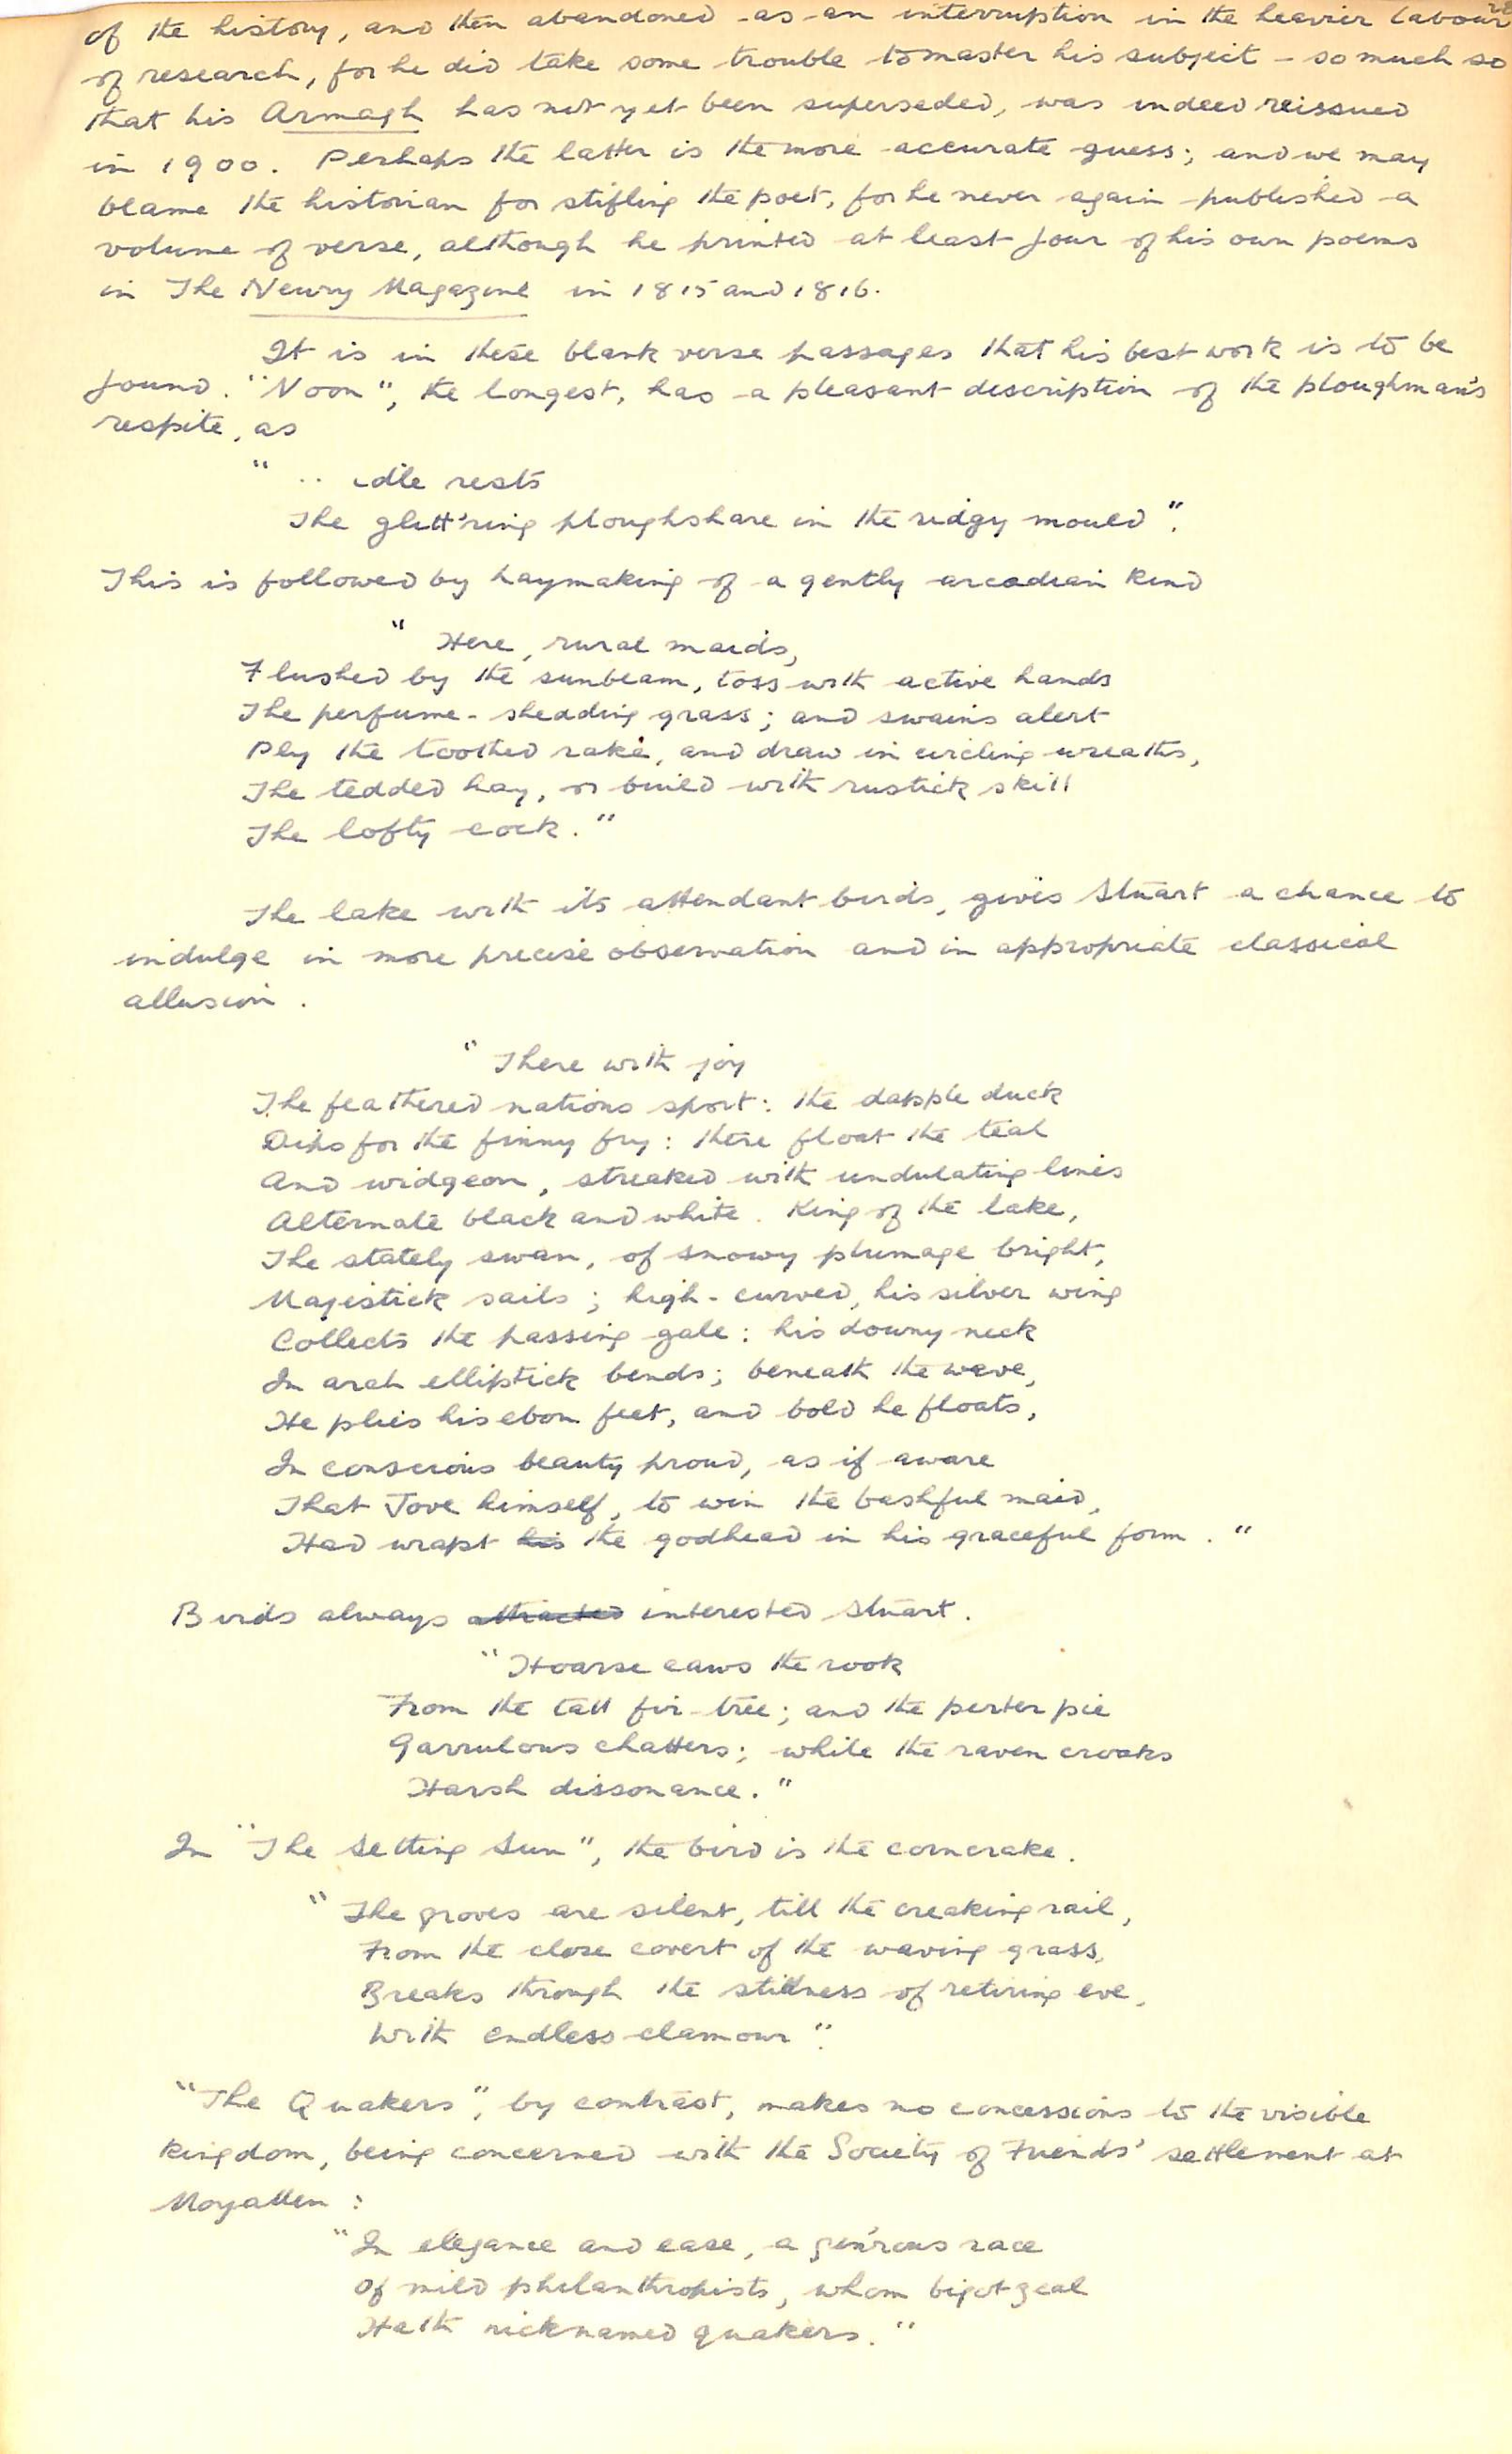 of the history, and then abandoned as an interruption in the heavier labour
of research, for he did take some trouble to master his subject - so much so
that his Armagh has not yet been superseded, was indeed reissued
in 1900. Perhaps the latter is the more accurate guess; and we may
blame the historian for stifling the poet, for he never again published a
volume of verse, although he printed at least four of his own poems
in The Newry Magazine in 1815 and 1816.
It is in these blank verse passages that his best work is to be
found. "Noon", the longest, has a pleasant description of the ploughman's
respite, as
" .. idle rests
The glitt'ring ploughshare in the ridgy mould".
This is followed by haymaking of a gently arcadian kind
" Here, rural maids,
Flushed by the sunbeam, toss with active hands
The perfume-shedding grass; and swains alert
Ply the toothed rake, and draw in circling wreaths,
The tedded hay, or build with rustick skill
The lofty cock."
The lake with its attendant birds, gives Stuart a chance to
indulge in more precise observation and in appropriate classical
allusion.
" There with joy
The feathered nations sport: the dapple duck
Dips for the finny fry: there float the teal
And widgeon, streaked with undulating lines
Alternate black and white. King of the lake,
The stately swan, of snowy plumage bright,
Majestick sails; high-curved, his silver wing
Collects the passing gale: his downy neck
In arch elliptick bends; beneath the wave,
He plies his ebon feet, and bold he floats,
In conscious beauty proud, as if aware
That Jove himself, to win the bashful maid,
Had wrapt his the godhead in his graceful form."
Birds always attracted interested Stuart.
"Hoarse caws the rook
From the tall fir-tree; and the perter pie
Garrulous chatters; while the raven croaks
Harsh dissonance."
In "The Setting Sun", the bird is the corncrake.
"The groves are silent, till the creaking rail,
From the close covert of the waving grass,
Breaks through the stillness of retiring eve,
With endless clamour".
"The Quakers", by contrast, makes no concessions to the visible
kingdom, being concerned with the Society of Friends' settlement at
Moyallen:
"In elegance and ease, a gen'rous race
Of mild philanthropists, whom bigot zeal
Hath nicknamed quakers."